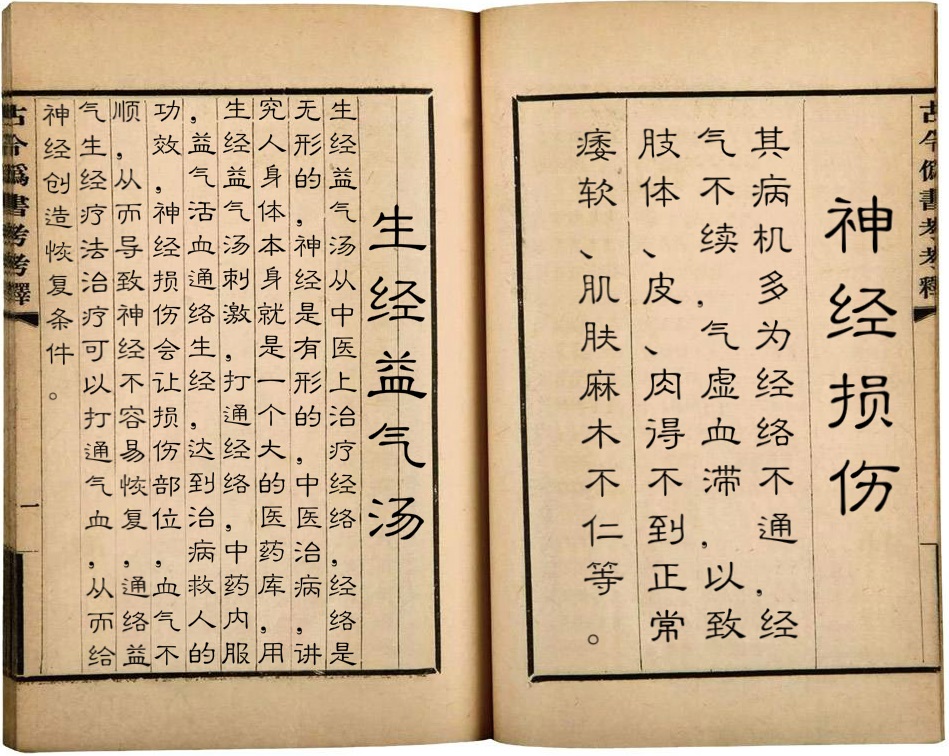 古今僞書考考釋
神经损伤
其病机多为经络不通，经
气不续，气虚血滞，以致
肢体、皮、肉得不到正常
痿软、肌肤麻木不仁等。
生经益气汤
生经益气汤从中医上治疗经络，经络是
无形的，神经是有形的，中医治病，讲
究人身体本身就是一个大的医药库，用
生经益气汤刺激，打通经络，中药内服
，益气活血通络生经，达到治病救人的
功效，神经损伤会让损伤部位，血气不
顺，从而导致神经不容易恢复，通络益
气生经疗法治疗可以打通气血，从而给
神经创造恢复条件。
古今僞書考考釋
一